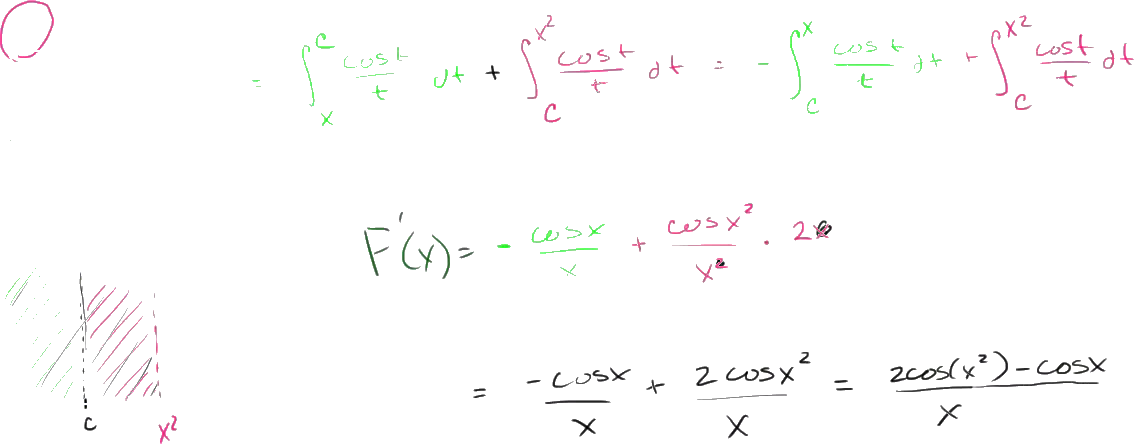 = ∫_x^c cos t / t dt + ∫_c^{x²} cos t / t dt = - ∫_c^x cos t / t dt + ∫_c^{x²} cos t / t dt
F'(x) = - cos x / x + cos x² / x² · 2x
= -cos x / x + 2 cos x² / x = 2cos(x²) - cos x / x
c x²